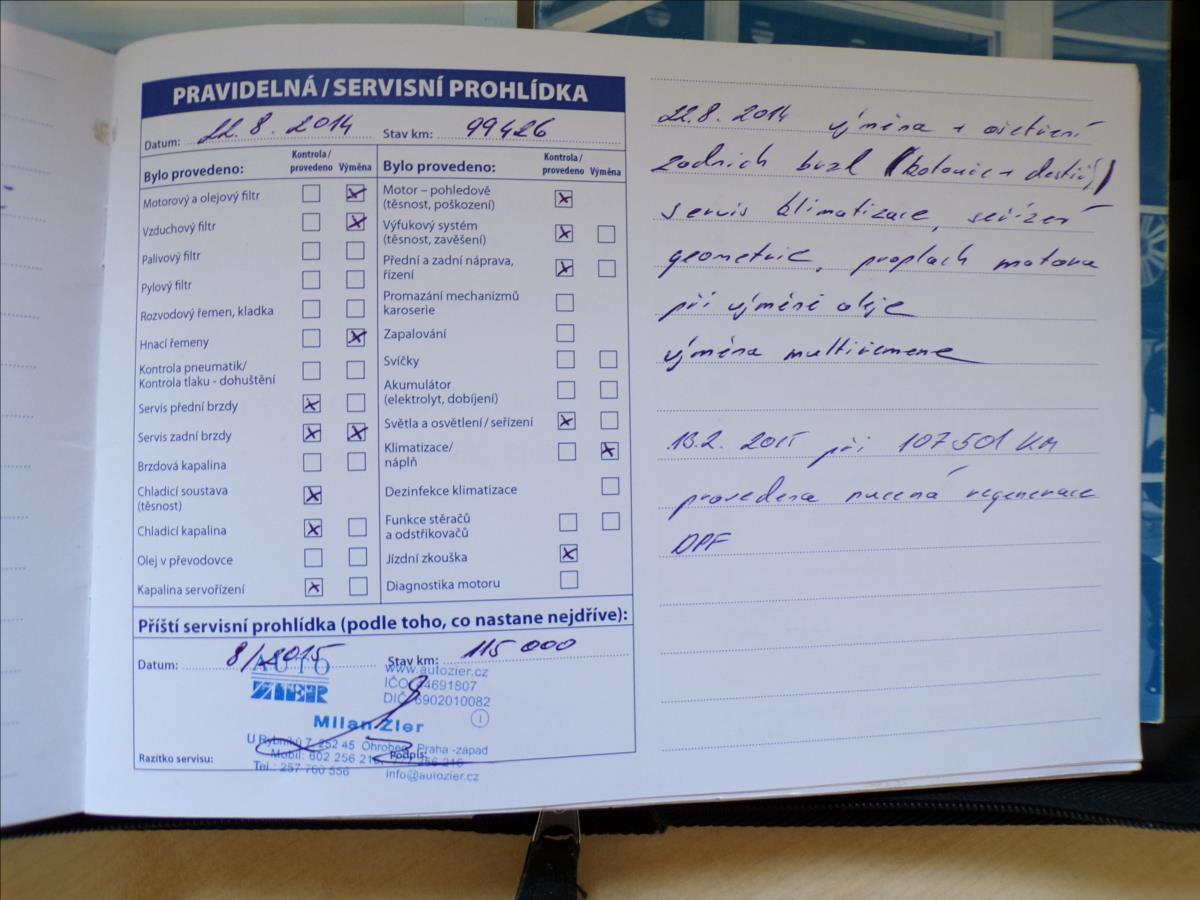 PRAVIDELNÁ / SERVISNÍ PROHLÍDKA
Datum: 22. 8. 2014 Stav km: 99426
Bylo provedeno: Kontrola / provedeno Výměna
Motorový a olejový filtr
Vzduchový filtr
Palivový filtr
Pylový filtr
Rozvodový řemen, kladka
Hnací řemeny
Kontrola pneumatik/
Kontrola tlaku - dohuštění
Servis přední brzdy
Servis zadní brzdy
Brzdová kapalina
Chladicí soustava
(těsnost)
Chladicí kapalina
Olej v převodovce
Kapalina servořízení
Bylo provedeno: Kontrola / provedeno Výměna
Motor – pohledově
(těsnost, poškození)
Výfukový systém
(těsnost, zavěšení)
Přední a zadní náprava,
řízení
Promazání mechanizmů
karoserie
Zapalování
Svíčky
Akumulátor
(elektrolyt, dobíjení)
Světla a osvětlení / seřízení
Klimatizace/
náplň
Dezinfekce klimatizace
Funkce stěračů
a odstřikovačů
Jízdní zkouška
Diagnostika motoru
Příští servisní prohlídka (podle toho, co nastane nejdříve):
Datum: 8/2015 Stav km: 115 000
AUTO
ZIER
www.autozier.cz
IČO 4691807
DIČ 6902010082
Milan Zier
U Rybníků 7, 252 45 Ohrobec, Praha -západ
Mobil: 602 256
Tel.: 257 760 556
info@autozier.cz
Razítko servisu: Podpis:
22.8. 2014 výměna + ošetření
zadních brzd (kotouče + destič)
servis klimatizace, seřízení
geometrie, proplach motoru
při výměně oleje
výměna multiřemene
13.2. 2015 při 107501 KM
provedena nucená regenerace
DPF